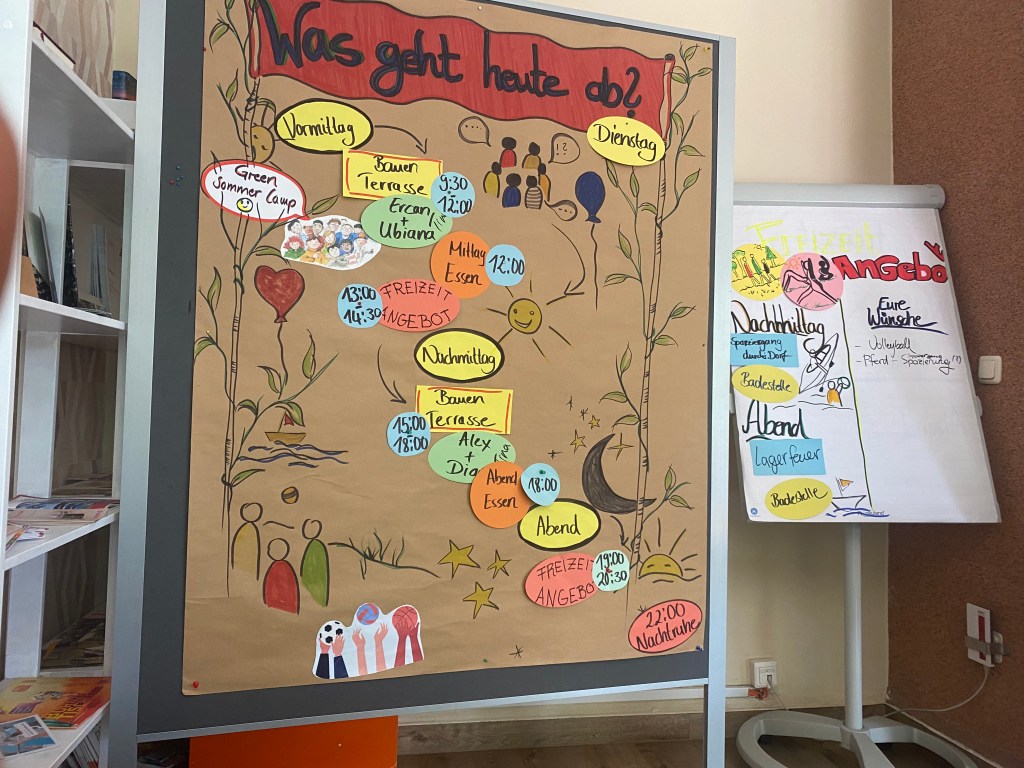 Was geht heute ab?
Vormittag
Dienstag
Green
Sommer Camp
Bauen
Terrasse
9:30
12:00
Ercan
+
Ubiana
Mittag
Essen
12:00
13:00
-
14:30
FREIZEIT
ANGEBOT
Nachmittag
Bauen
Terrasse
15:00
18:00
Alex
+
Abend
Essen
18:00
Abend
FREIZEIT
ANGEBOT
19:00
20:30
22:00
Nachtruhe
FREIZEIT
AnGebo
Nachmittag
Spaziergang
durchs Dorf
Badestelle
Abend
Lagerfeuer
Badestelle
Eure
Wünsche
- Volleyball
- Pferd - Spazierung (?)